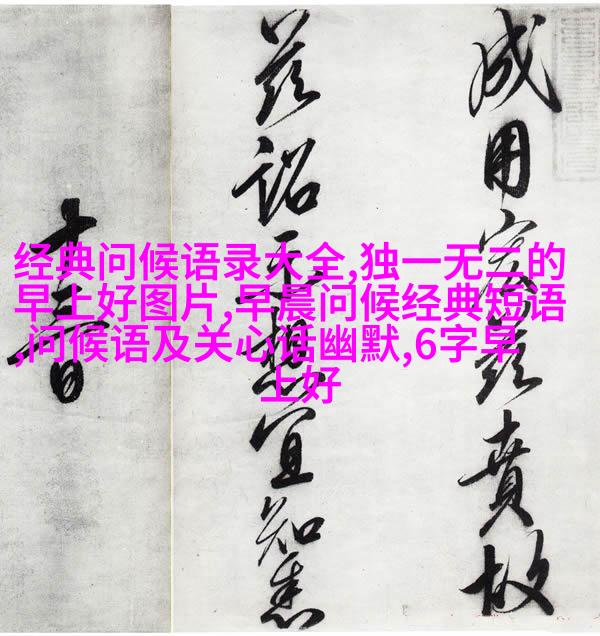 经典问候语录大全,独一无二的
早上好图片,早晨问候经典短语
,问候语及关心话幽默,6字早
上好
成用宏茲賁故
茲詔示想宜知悉